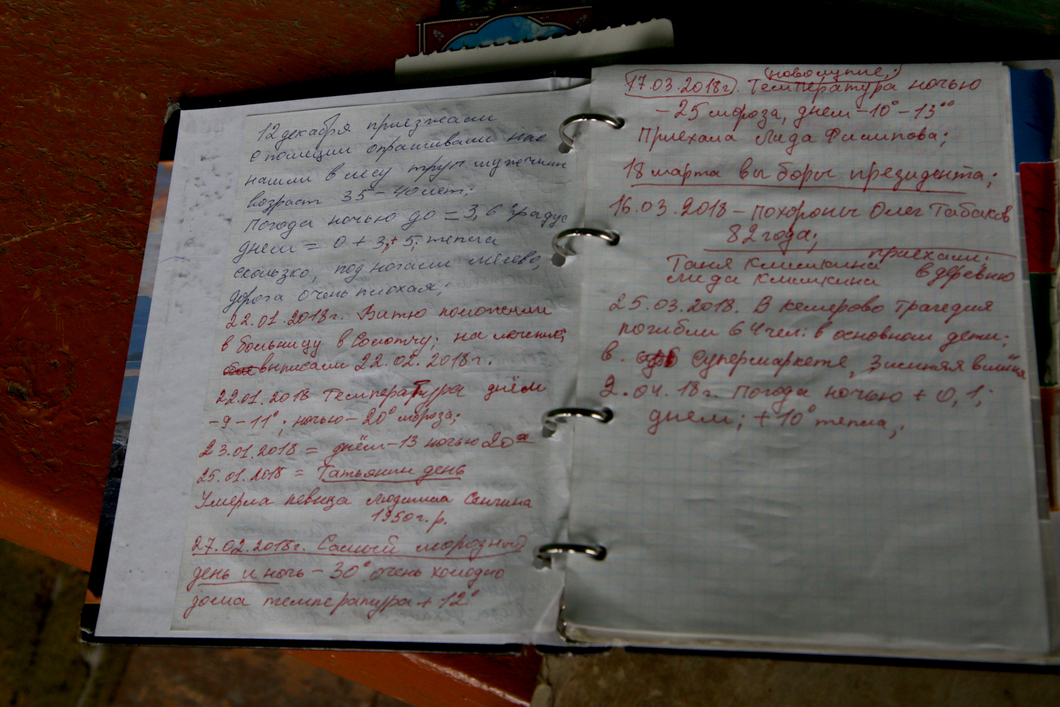 12 декабря приезжали
с полиции опрашивали нас
нашли в лесу труп мужчины
возраст 35-40 лет;
Погода ночью до = 3, 6 градус
днем = 0 + 3,+ 5; тепла
скользко, под ногами месево,
дорога очень плохая;
22.01.2018г. Витю положили
в больницу в Солотчу; на лечение,
выписали 22.02.2018г.
22.01.2018 Температура днём
-9-11°; ночью-20° мороза;
23.01.2018 = днём-13 ночью 20°
25.01.2018 = Татьянин день
Умерла певица Людмила Сенчина
1950г.р.
27.02.2018г. Самый морозный
день и ночь - 30° очень холодно
дома температура + 12°
новолуние;
17.03.2018г. Температура ночью
-25 мороза, днем -10°-13°
Приехала Лида Филипова;
18 марта выборы президента;
16.03.2018 - похороны Олег Табаков
82 года;
приехали:
Таня Климкина в деревню
Лида Климкина
25.03.2018. В кемерово трагедия
погибли 64 чел: в основном дети;
в. супермаркете, Зимняя вишня
2.04.18г. Погода ночью + 0, 1;
днем; + 10° тепла;